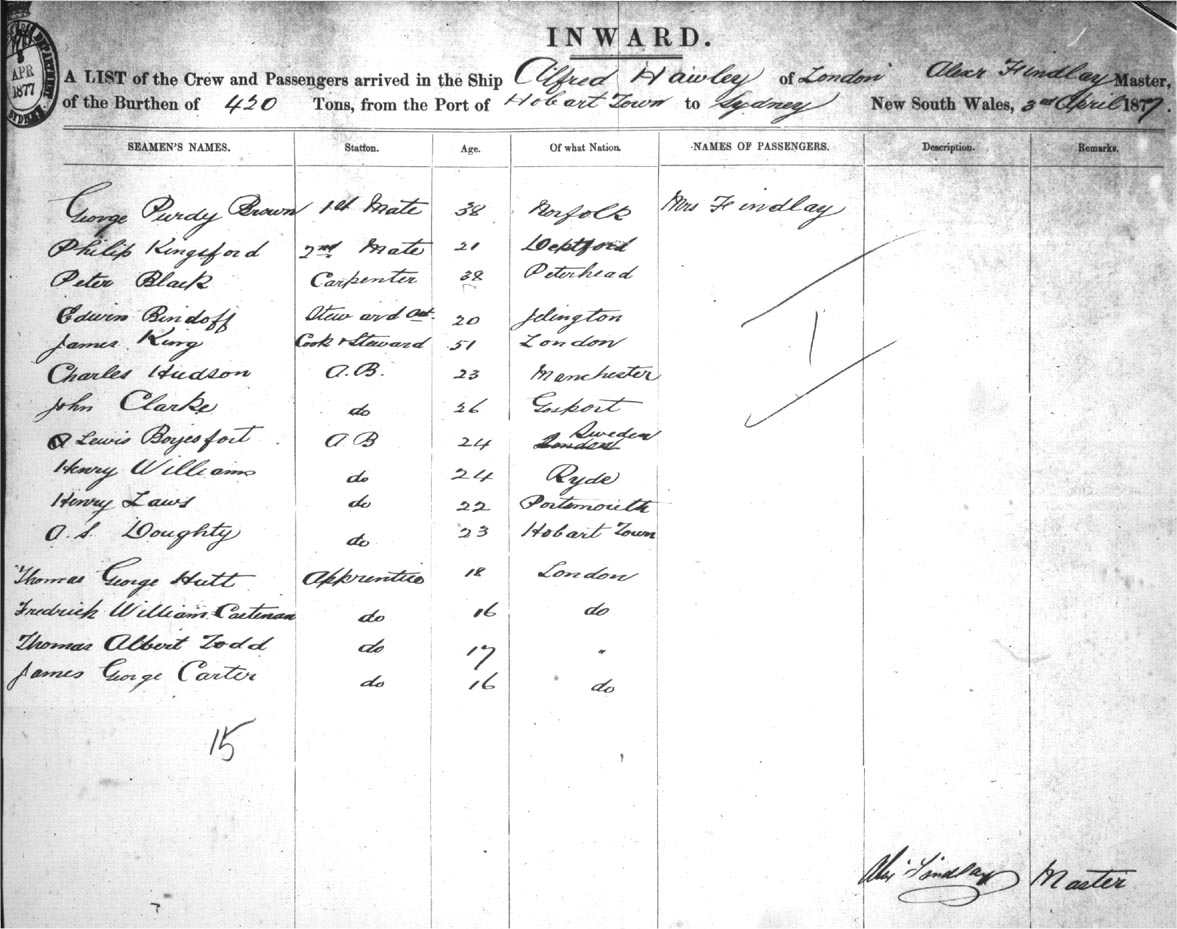 INWARD.
APR
1877
A LIST of the Crew and Passengers arrived in the Ship Alfred Hawley of London Alexr Findlay Master,
of the Burthen of 420 Tons, from the Port of Hobart Town to Sydney New South Wales, 3rd April 1877.
SEAMEN'S NAMES. Station. Age. Of what Nation. NAMES OF PASSENGERS. Description. Remarks.
George Purdy Brown 1st Mate 38 Norfolk Mrs Findlay
Philip Kingsford 2nd Mate 21 Deptford
Peter Black Carpenter 38 Peterhead
Edwin Bindoff Steward 20 Islington
James King Cook & Steward 51 London
Charles Hudson A.B. 23 Manchester
John Clarke do 26 Gosport
Lewis Boyesfort A B 24 Sweden
Henry Williams do 24 Ryde
Henry Laws do 22 Portsmouth
A. S. Doughty do 23 Hobart Town
Thomas George Hutt Apprentice 18 London
Fredrick William do 16 do
Thomas Albert Todd do 17 "
James George Carter do 16 do
1
15
Alex Findlay Master